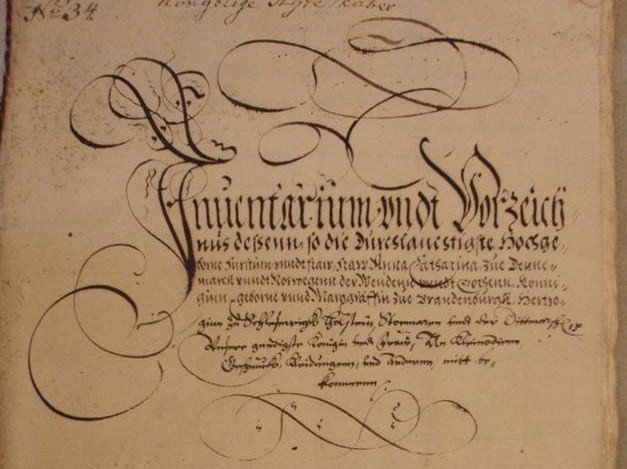 No 34
Kongelige Skifte Sager
Inuentarium vndt Vorzeich=
nüs deßenn, so die Düreslauestigste Hochge=
borne Fürstin vnndt fraw, fraw Anna Catharina, züe Denne=
marck vnndt Norwegenn der Wenden vnndt Gothenn, Konni=
ginn, geborne vnnd Marggräffin züe Brandenbürgk, Hertzo=
ginn zu Schleßwigk Holstein, Stormarn vnd der Dittmarschen
Unsere gnedigste Königin vnd Fraw, An Kleinodien,
Geschmuck, Kleidungenn, vnd Anderm mitt be=
kommenn